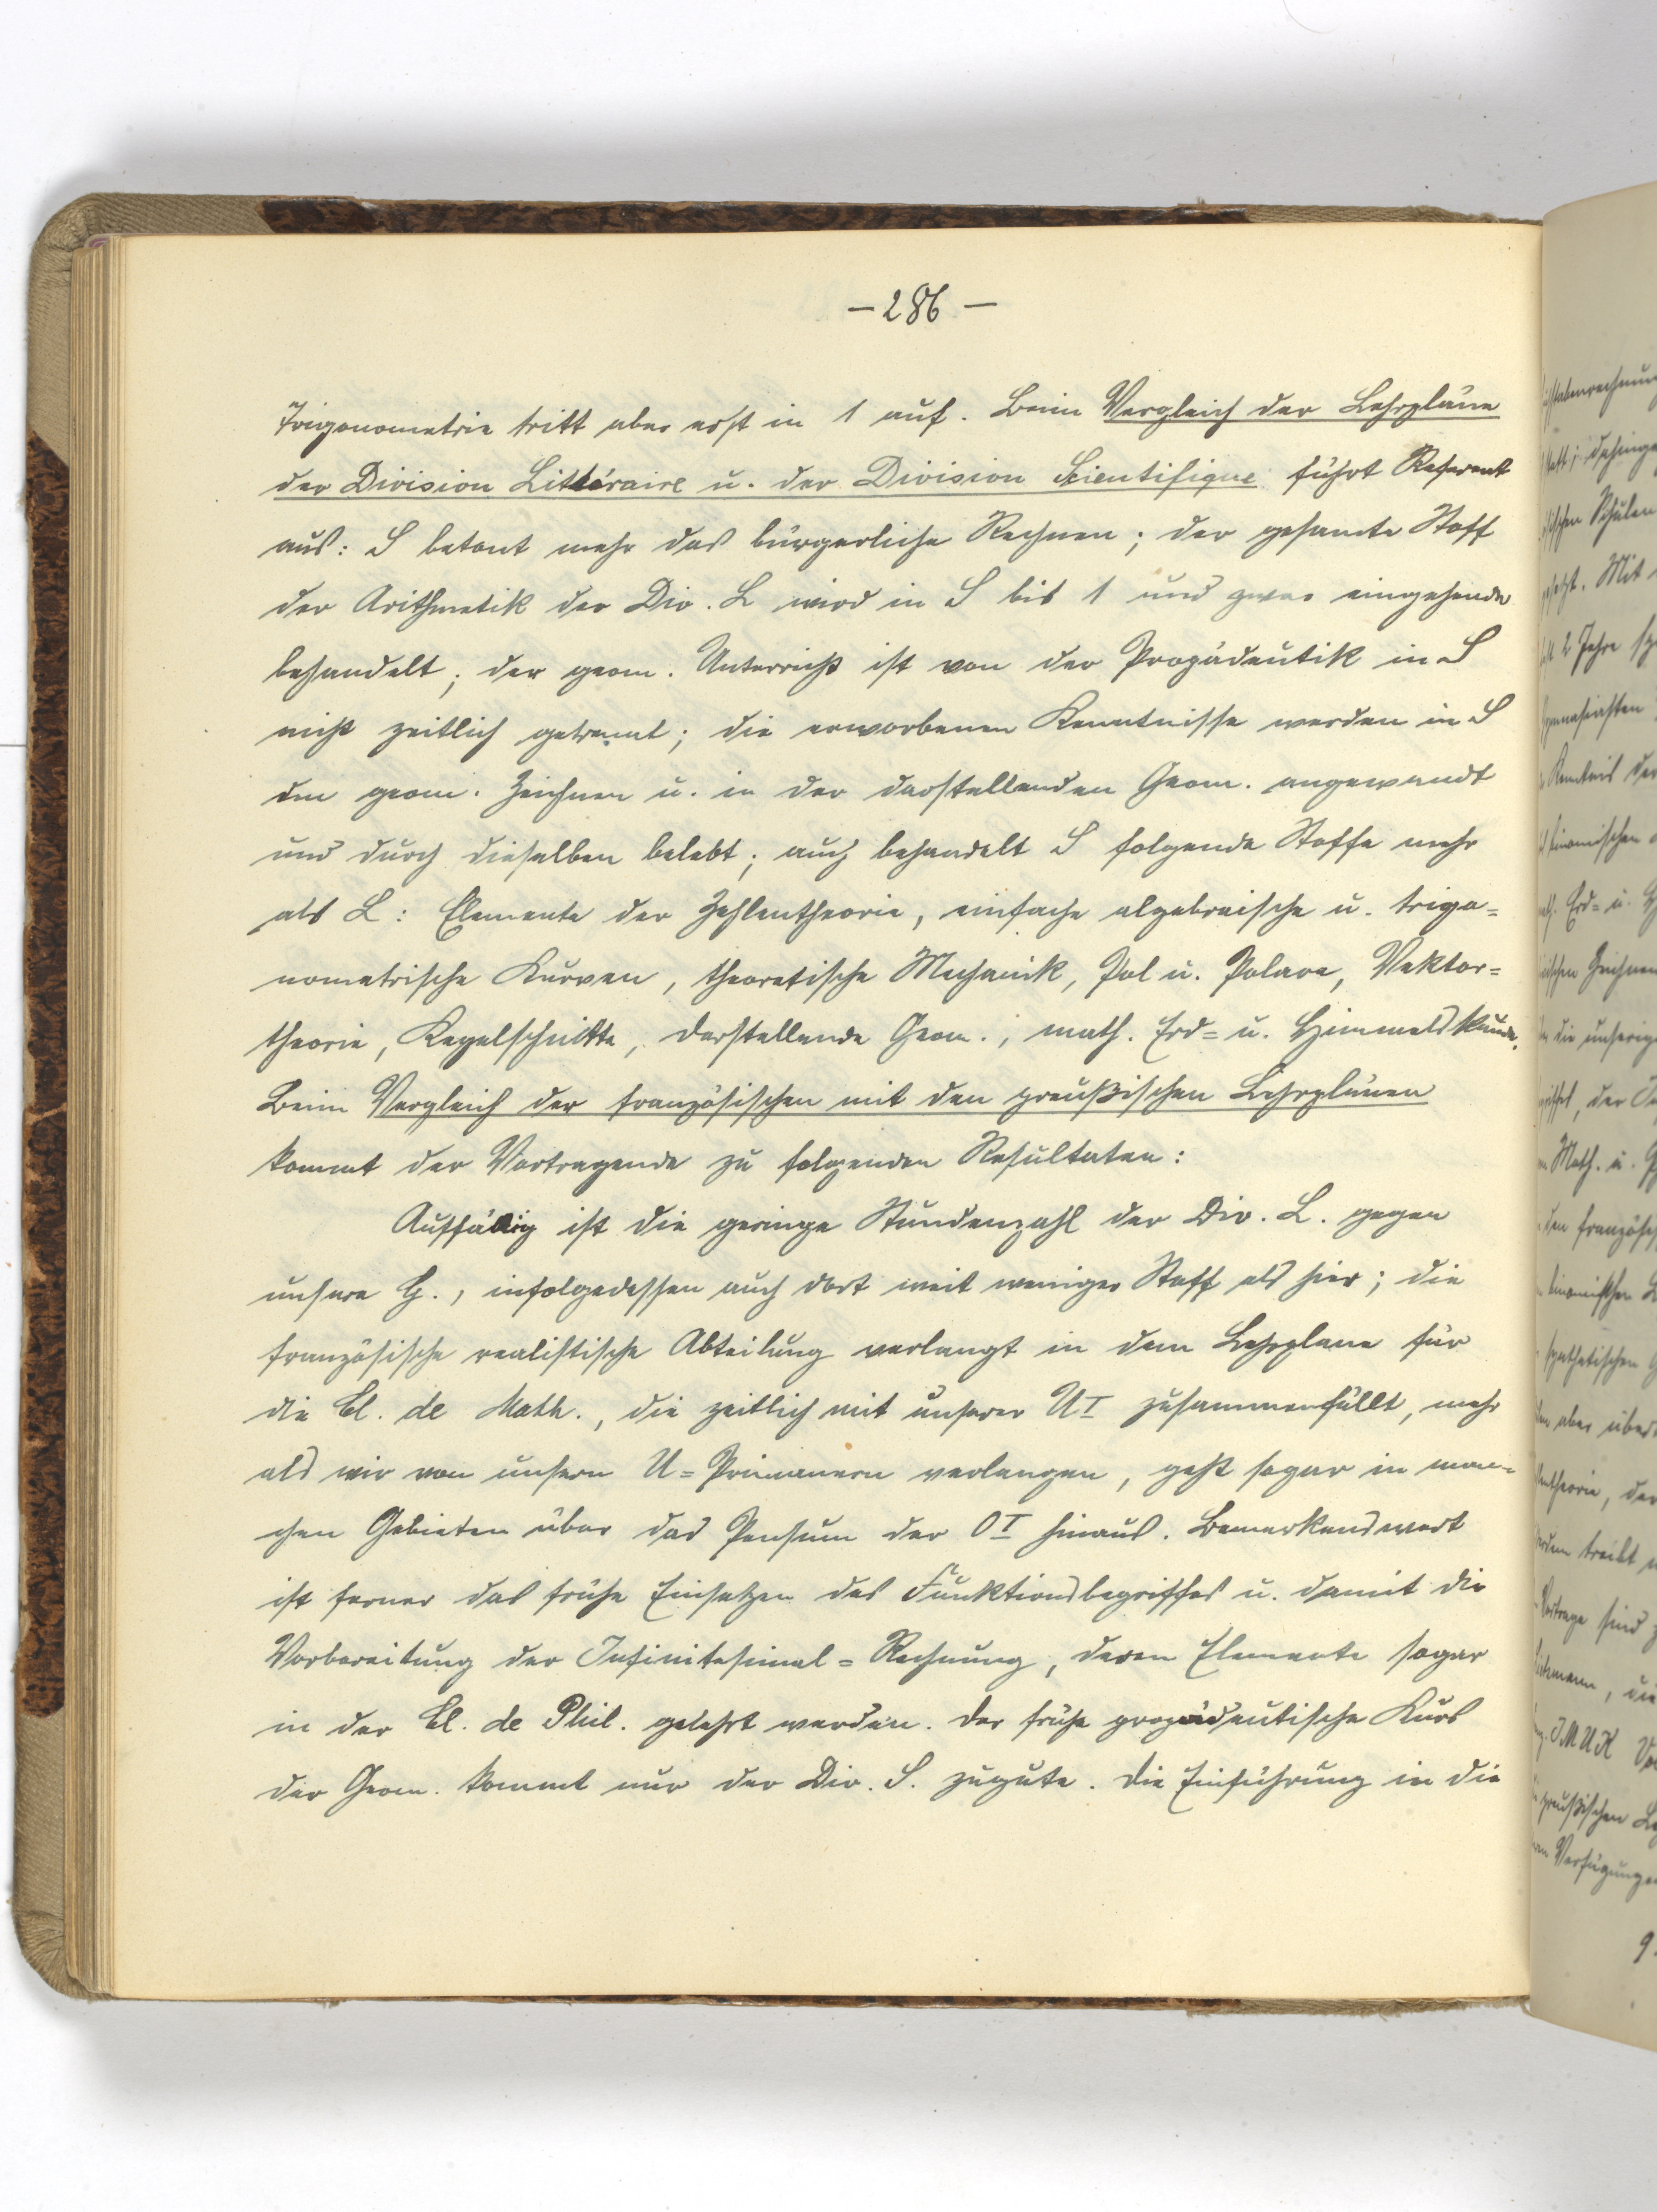 — 286 —
Trigonometrie tritt aber erst in 1 auf. Beim Vergleich der Lehrpläne
der Division Littéraire u. der Division Scientifique führt Referent
aus: S betont mehr das bürgerliche Rechnen; der gesamte Stoff
der Arithmetik der Div. L wird in S bis 1 und zwar eingehender
behandelt; der geom. Unterricht ist von der Propädeutik in S
nicht zeitlich getrennt; die erworbenen Kenntnisse werden in S
im geom. Zeichnen u. in der darstellenden Geom. angewandt
und durch dieselben belebt; auch behandelt S folgende Stoffe mehr
als L: Elemente der Zahlentheorie, einfache algebraische u. trigo=
nometrische Kurven, theoretische Mechanik, Pol u. Polare, Vektor=
theorie, Kegelschnitte, darstellende Geom., math. Erd= u. Himmelskunde.
Beim Vergleich der französischen mit den preußischen Lehrplänen
kommt der Vortragende zu folgenden Resultaten:
Auffällig ist die geringe Stundenzahl der Div. L. gegen
unsere G., infolgedessen auch dort weit weniger Stoff als hier; die
französische realistische Abteilung verlangt in dem Lehrplane für
die Cl. de Math., die zeitlich mit unserer UI zusammenfällt, mehr
als wir von unsern U=Primanern verlangen, geht sogar in man=
chen Gebieten über das Pensum der OI hinaus. Bemerkenswert
ist ferner das frühe Einsetzen des Funktionsbegriffes u. damit die
Vorbereitung der Infinitesimal=Rechnung, deren Elemente sogar
in der Cl. de Phil. gelehrt werden. Der frühe propädeutische Kurs
der Geom. kommt nur der Div. S. zugute. Die Einführung in die